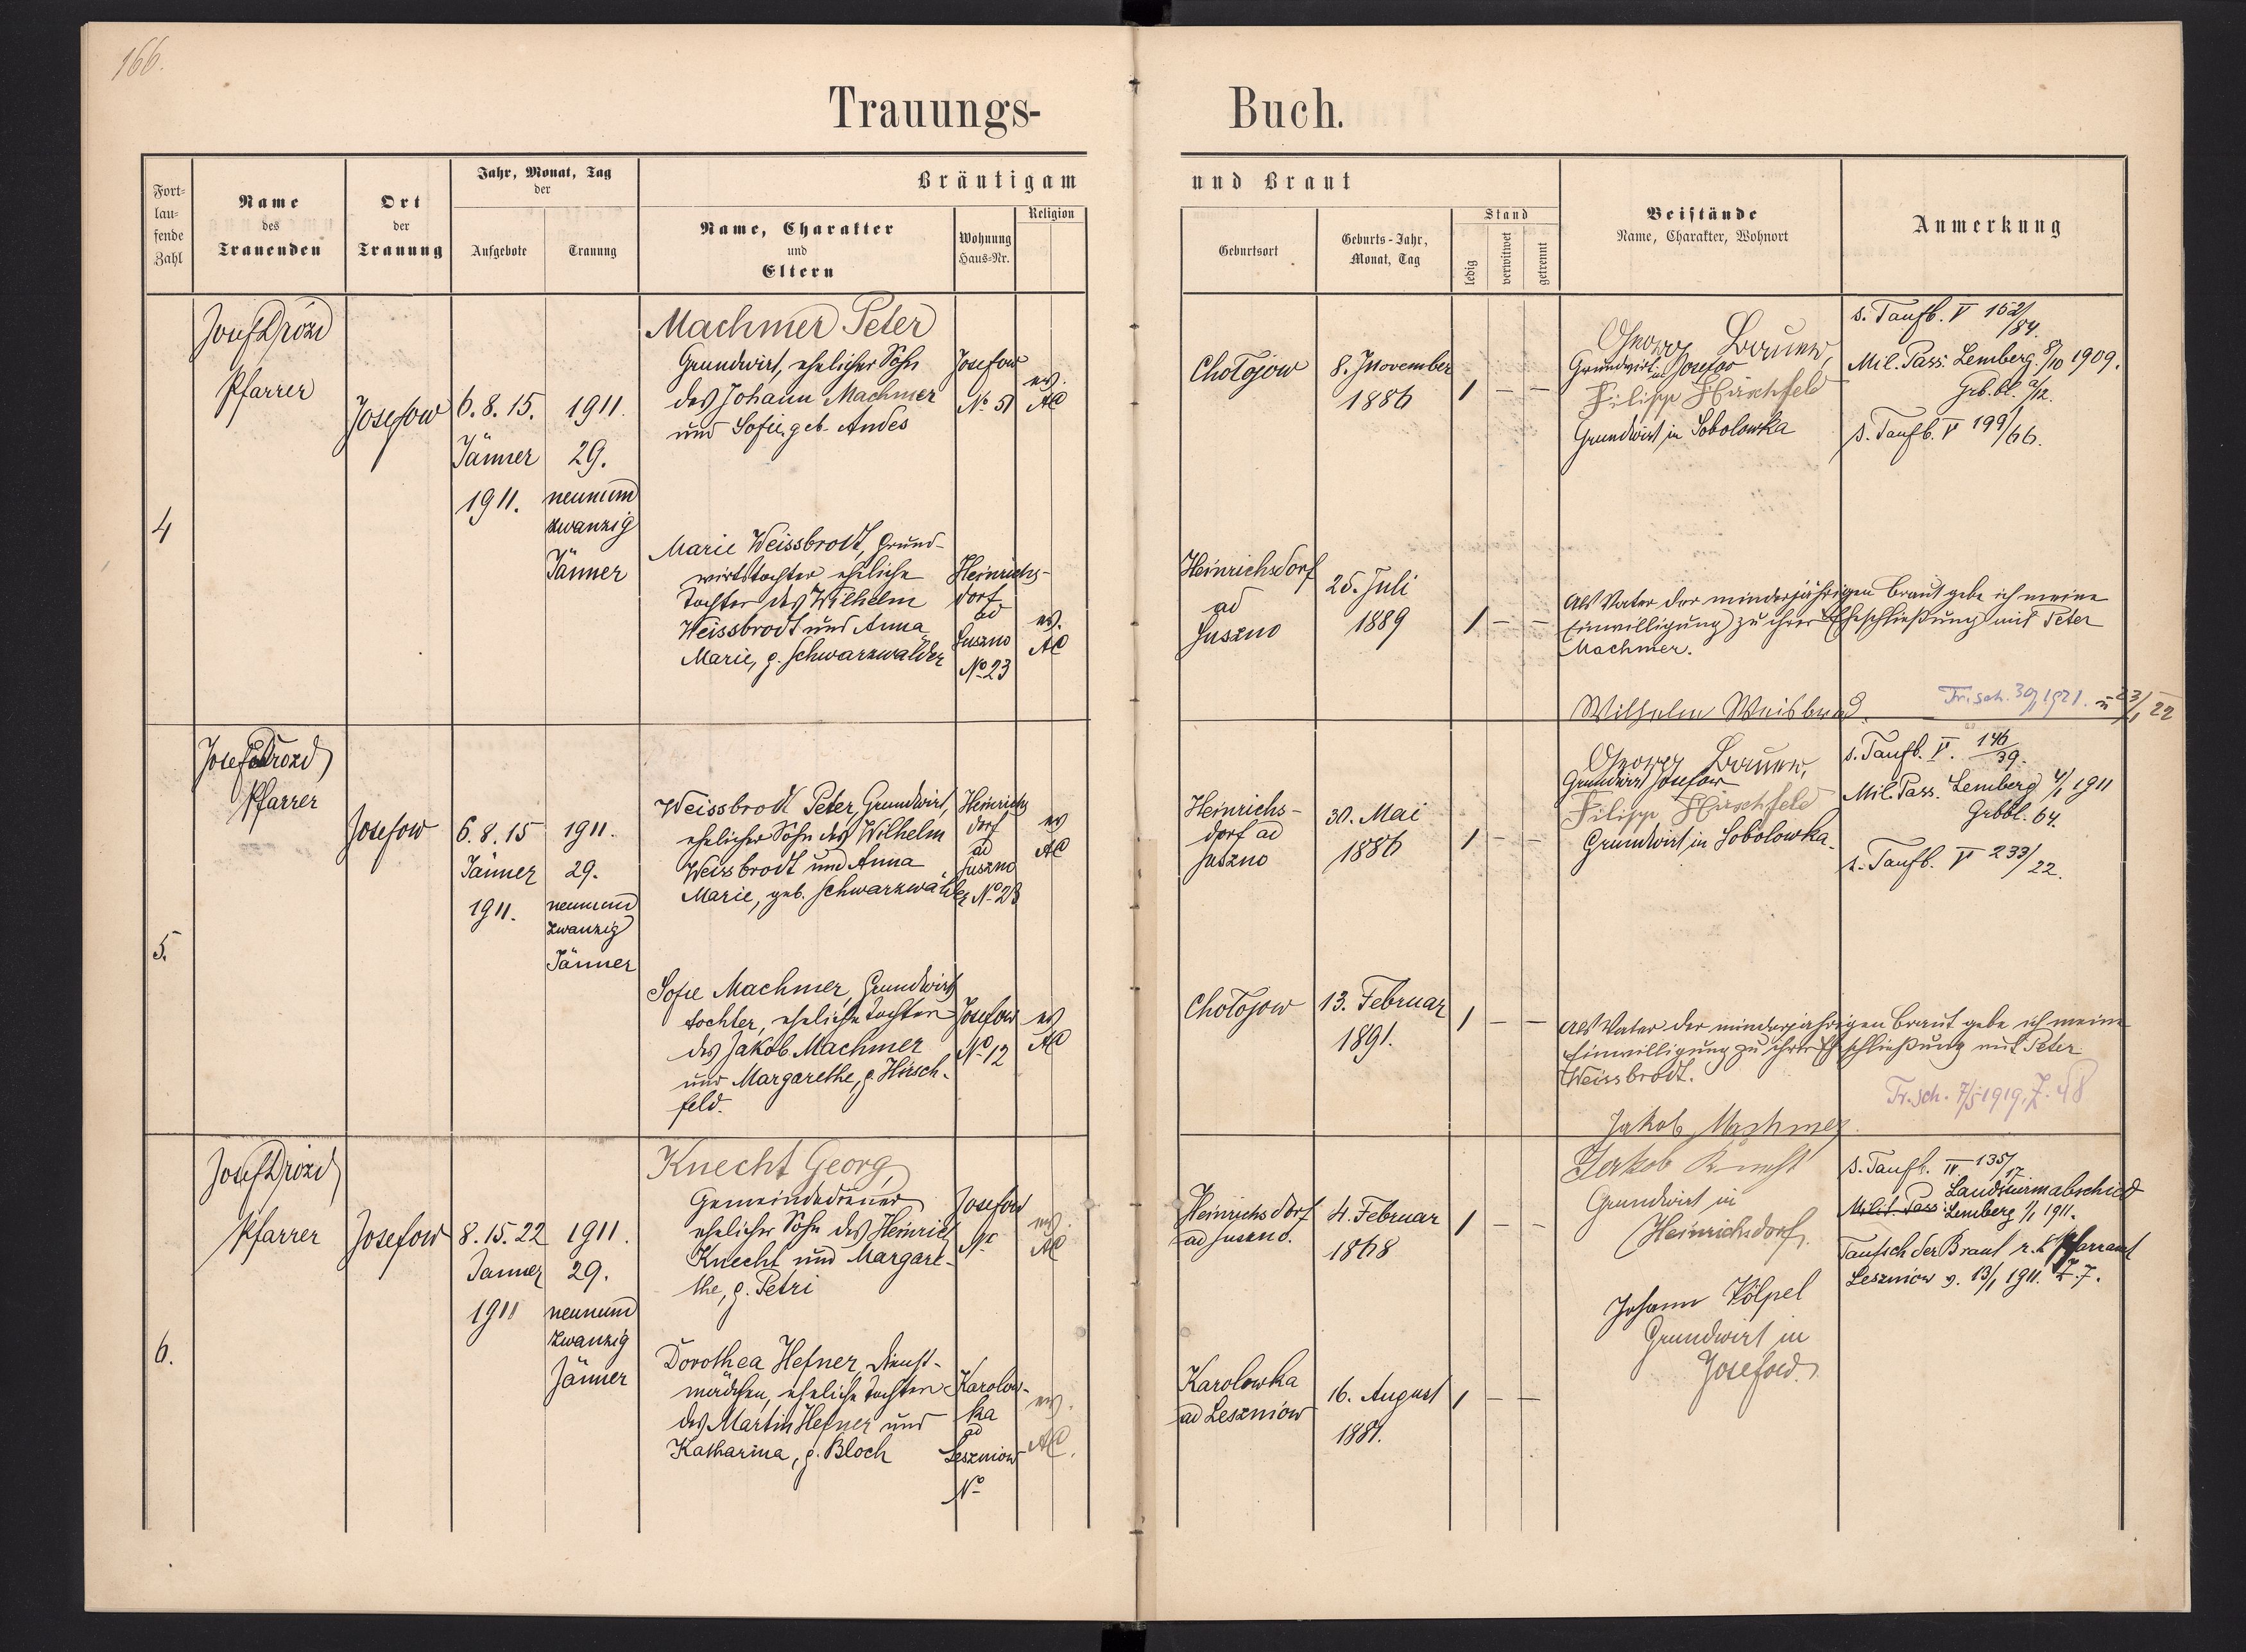 166.
Trauungs- Buch.
Fort-
lau-
fende
Zahl
Name
des
Trauenden
Ort
der
Trauung
Jahr, Monat, Tag
der
Aufgebote
Trauung
Bräutigam und Braut
Name, Charakter
und
Eltern
Wohnung
Haus-Nr.
Religion
Geburtsort
Geburts-Jahr,
Monat, Tag
Stand
ledig
verwitwet
getrennt
Beistände
Name, Charakter, Wohnort
Anmerkung
4
Josef Drozd
Pfarrer
Josefow
6. 8. 15.
Jänner
1911.
1911.
29.
neunund
zwanzig
Jänner
Machmer Peter
Grundwirt, ehelicher Sohn
des Johann Machmer
und Sofie, geb. Andes
Josefow
No 51
ev.
AC
Chotojow
8. November
1886
1 — —
Georg Bauer,
Grundwirt in Josefow
Filipp Hirschfeld
Grundwirt in Sobolowka
s. Taufb. V 152/84.
Mil. Pass. Lemberg 8/10 1909.
Grb. bl. a/12.
s. Taufb. V 199/66.
Marie Weissbrodt, Grund-
wirtstochter eheliche
Tochter des Wilhelm
Weissbrodt und Anna
Marie, g. Schwarzwälder
Heinrichs-
dorf
ad
Juszno
No 23
ev.
AC
Heinrichsdorf
ad
Juszno
25. Juli
1889
1 — —
Als Vater der minderjährigen Braut gebe ich meine
Einwilligung zu ihrer Eheschließung mit Peter
Machmer.
Wilhelm Weisbrod.
Tr. sch. 30/1 1921. u 23/1 22
5.
Josef Drozd
Pfarrer
Josefow
6. 8. 15
Jänner
1911.
1911.
29.
neunund
zwanzig
Jänner
Weissbrodt Peter, Grundwirt,
ehelicher Sohn des Wilhelm
Weissbrodt und Anna
Marie, geb. Schwarzwälder
Heinrichs
dorf
ad
Juszno
No 23
ev
AC
Heinrichs-
dorf ad
Juszno
30. Mai
1886
1 — —
Georg Bauer,
Grundwirt Josefow
Filipp Hirschfeld
Grundwirt in Sobolowka.
s. Taufb. V. 146/39.
Mil. Pass. Lemberg 4/1 1911
Grbbl. 64.
s. Taufb. V 233/22.
Sofie Machmer, Grundwirts
tochter, eheliche Tochter
des Jakob Machmer
und Margarethe, g. Hirsch-
feld.
Josefow
No 12
ev
AC
Chotojow
13. Februar
1891.
1 — —
Als Vater der minderjährigen Braut gebe ich meine
Einwilligung zu ihrer Eheschließung mit Peter
Weissbrodt.
Jakob Machmer.
Tr. sch. 7/5 1919, Z. 48
6.
Josef Drozd
Pfarrer
Josefow
8. 15. 22
Jänner
1911
1911.
29.
neunund
zwanzig
Jänner
Knecht Georg,
Gemeindediener
ehelicher Sohn des Heinrich
Knecht und Margare-
the, g. Petri
Josefow
No
ev.
AC
Heinrichsdorf
ad Juszno.
4. Februar
1868
1 — —
Jakob Knecht
Grundwirt in
Heinrichsdorf.
Johann Völpel
Grundwirt in
Josefow.
s. Taufb. IV. 135/17
Landsturmabschied
Milit. Pass. Lemberg 1/1 1911.
Taufsch. der Braut r. k. Pfarramt
Leszniow v. 13/1 1911. Z. 7.
Dorothea Hefner, Dienst-
mädchen, eheliche Tochter
des Martin Hefner und
Katharina, g. Bloch
Karolow-
ka
ad
Leszniow
No
ev.
AC.
Karolowka
ad Leszniow
16. August
1881.
1 — —